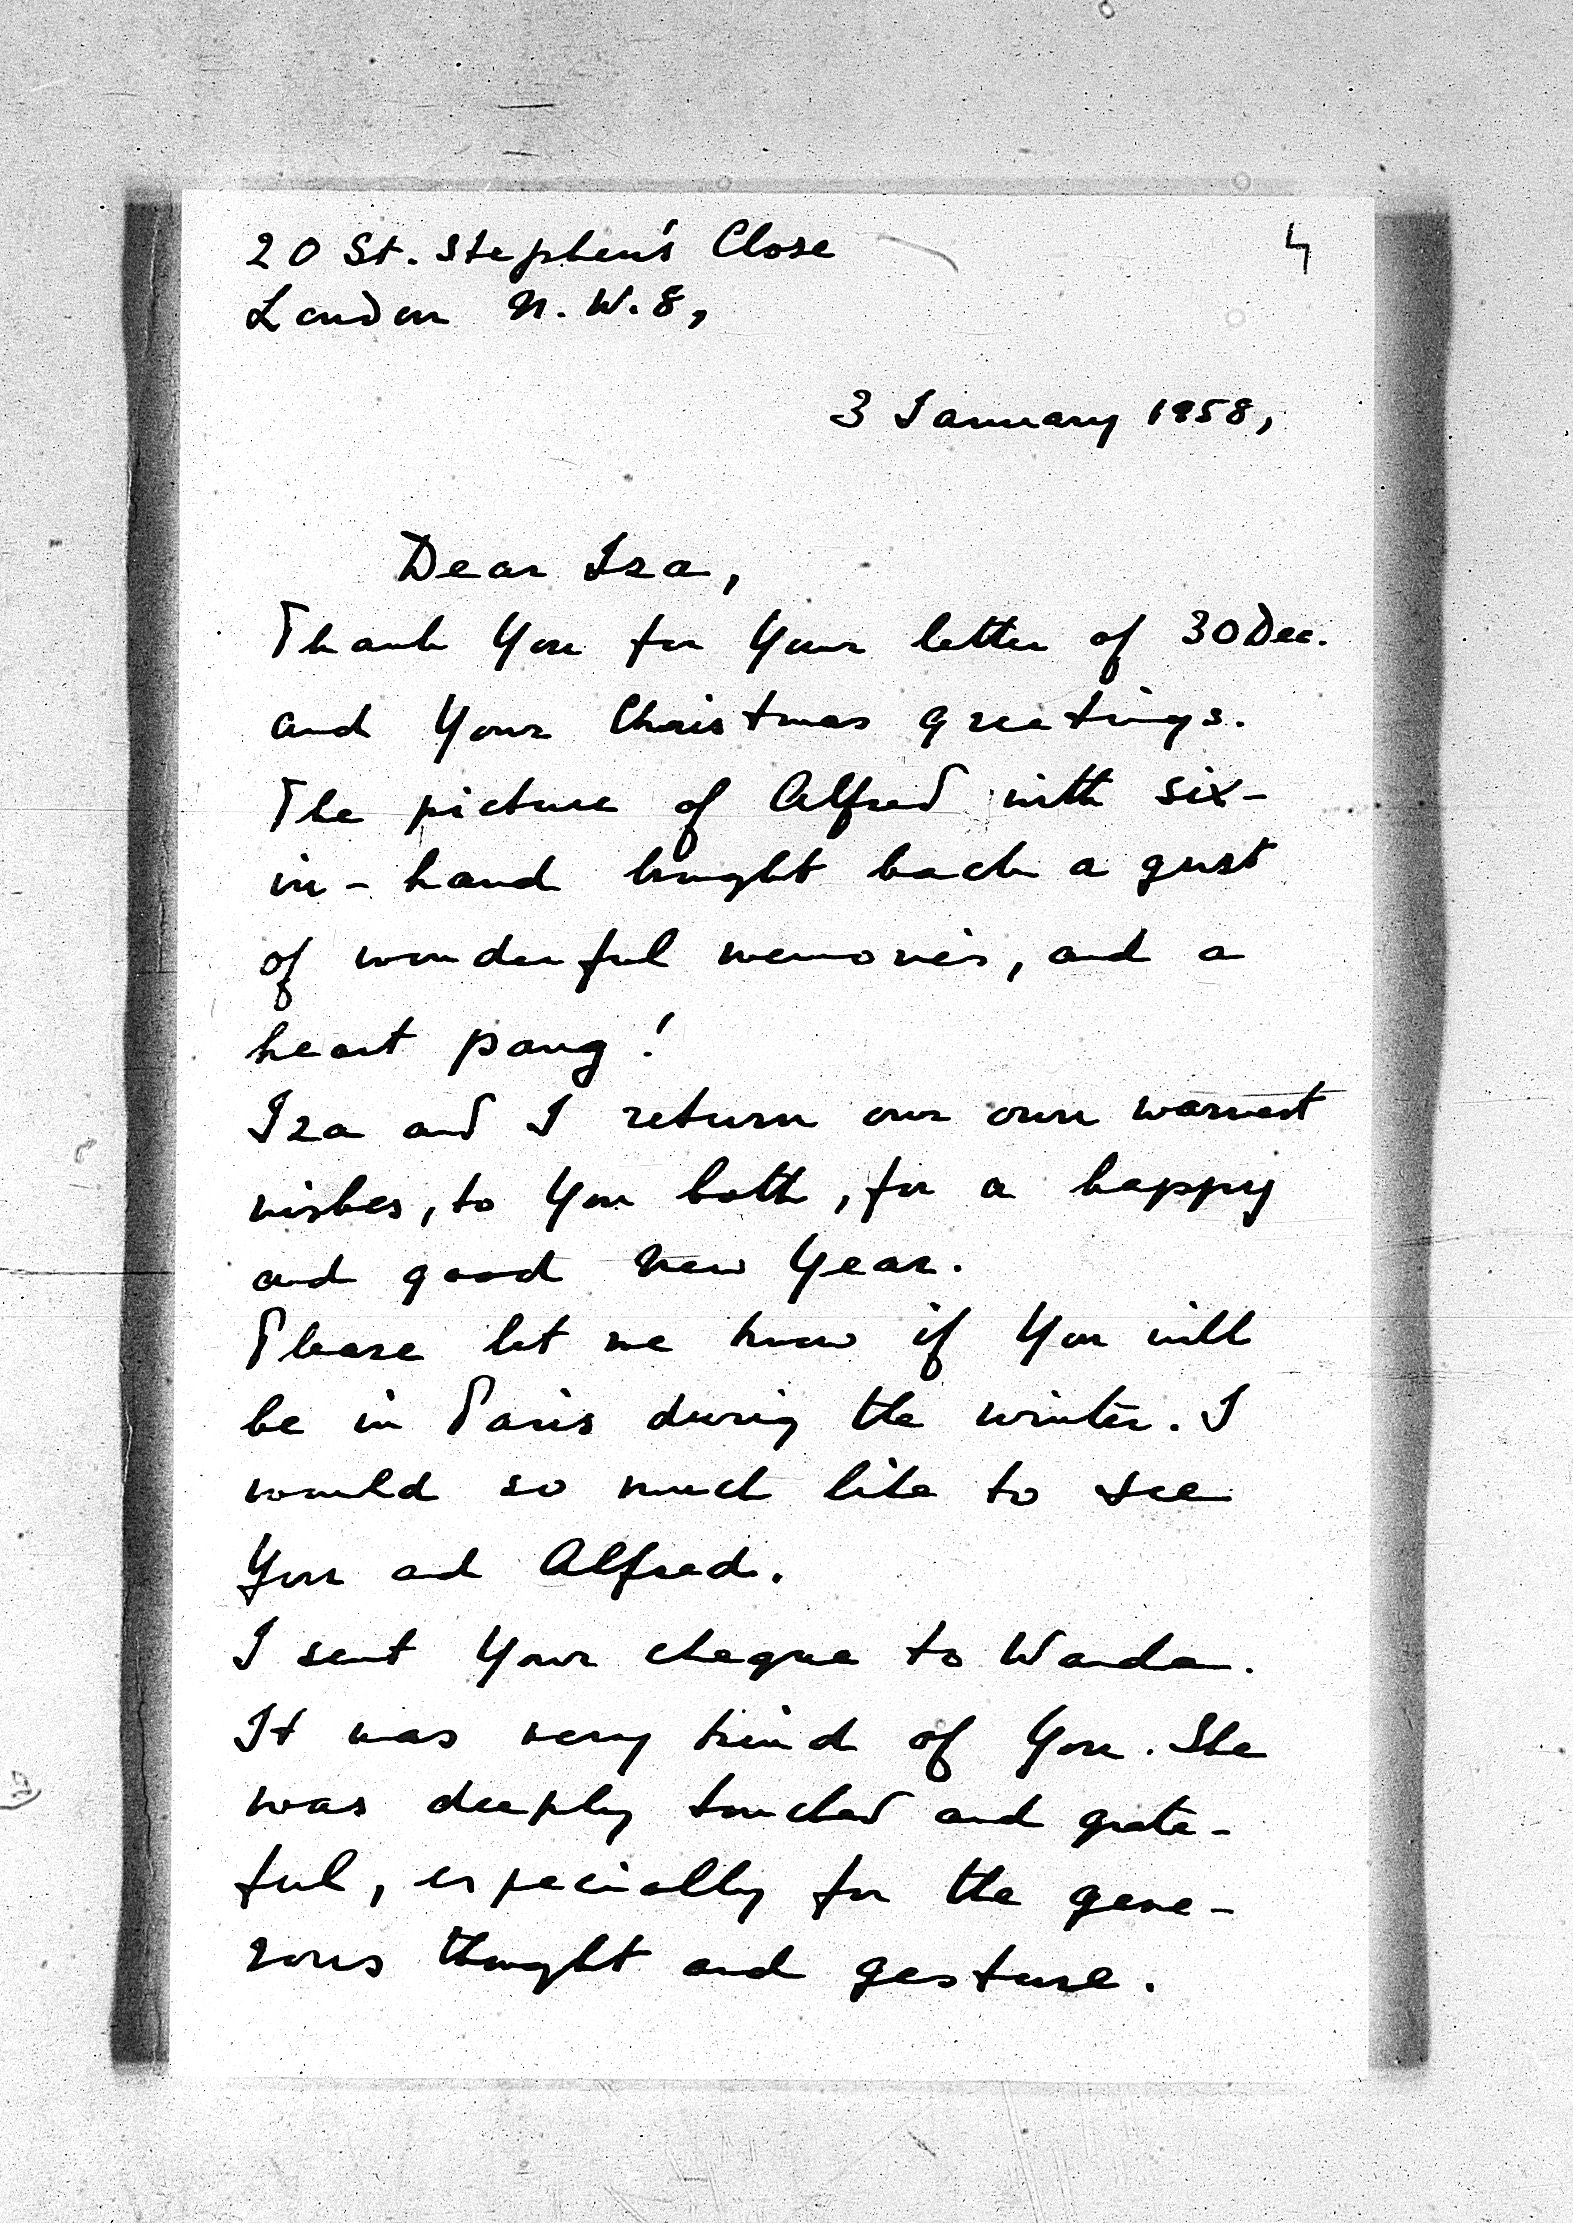 20 St. Stephen's Close
London N.W.8,
4
3 January 1958,
Dear Iza,
Thank You for Your letter of 30 Dec.
and Your Christmas greetings.
The picture of Alfred with six-
in-hand brought back a gust
of wonderful memories, and a
heart pang!
Iza and I return our own warmest
wishes, to You both, for a happy
and good New Year.
Please let me know if You will
be in Paris during the winter. I
would so much like to see
You and Alfred.
I sent Your cheque to Wanda.
It was very kind of You. She
was deeply touched and grate-
ful, especially for the gene-
rous thought and gesture.